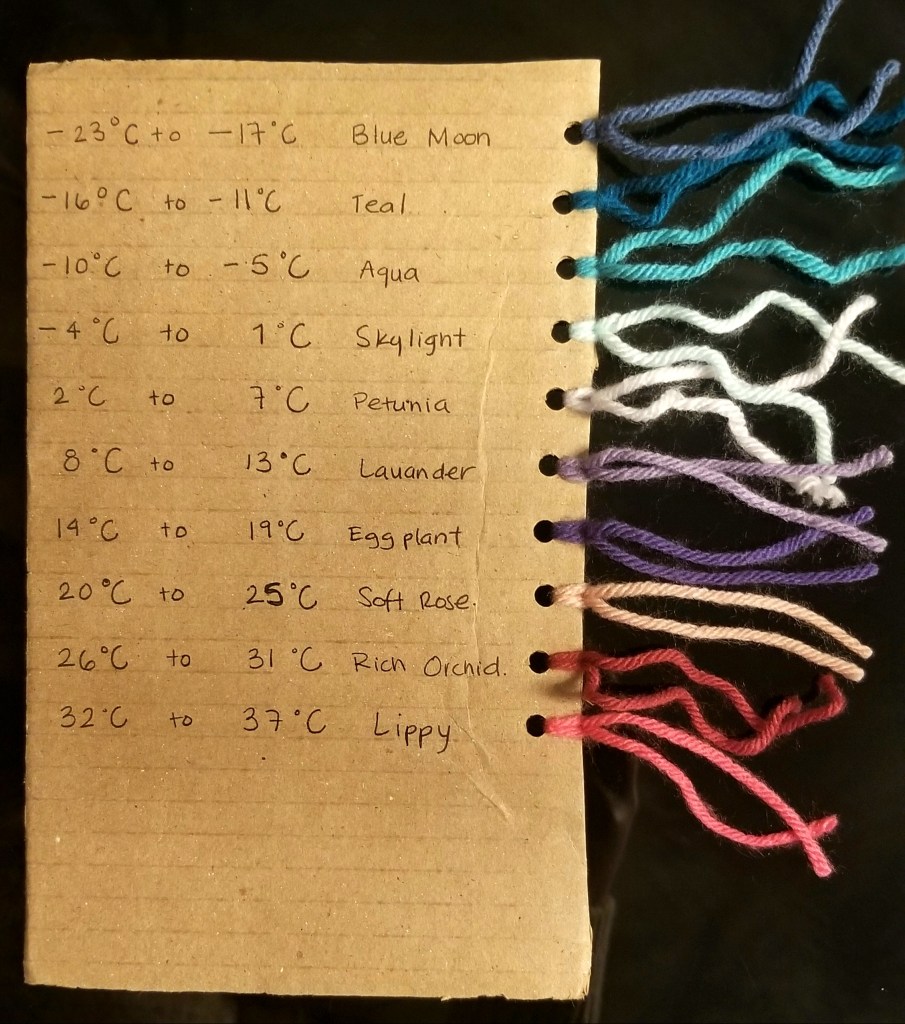 -23°C to -17°C Blue Moon
-16°C to -11°C Teal
-10°C to -5°C Aqua
-4°C to 1°C Skylight
2°C to 7°C Petunia
8°C to 13°C Lavander
14°C to 19°C Eggplant
20°C to 25°C Soft Rose.
26°C to 31°C Rich Orchid.
32°C to 37°C Lippy